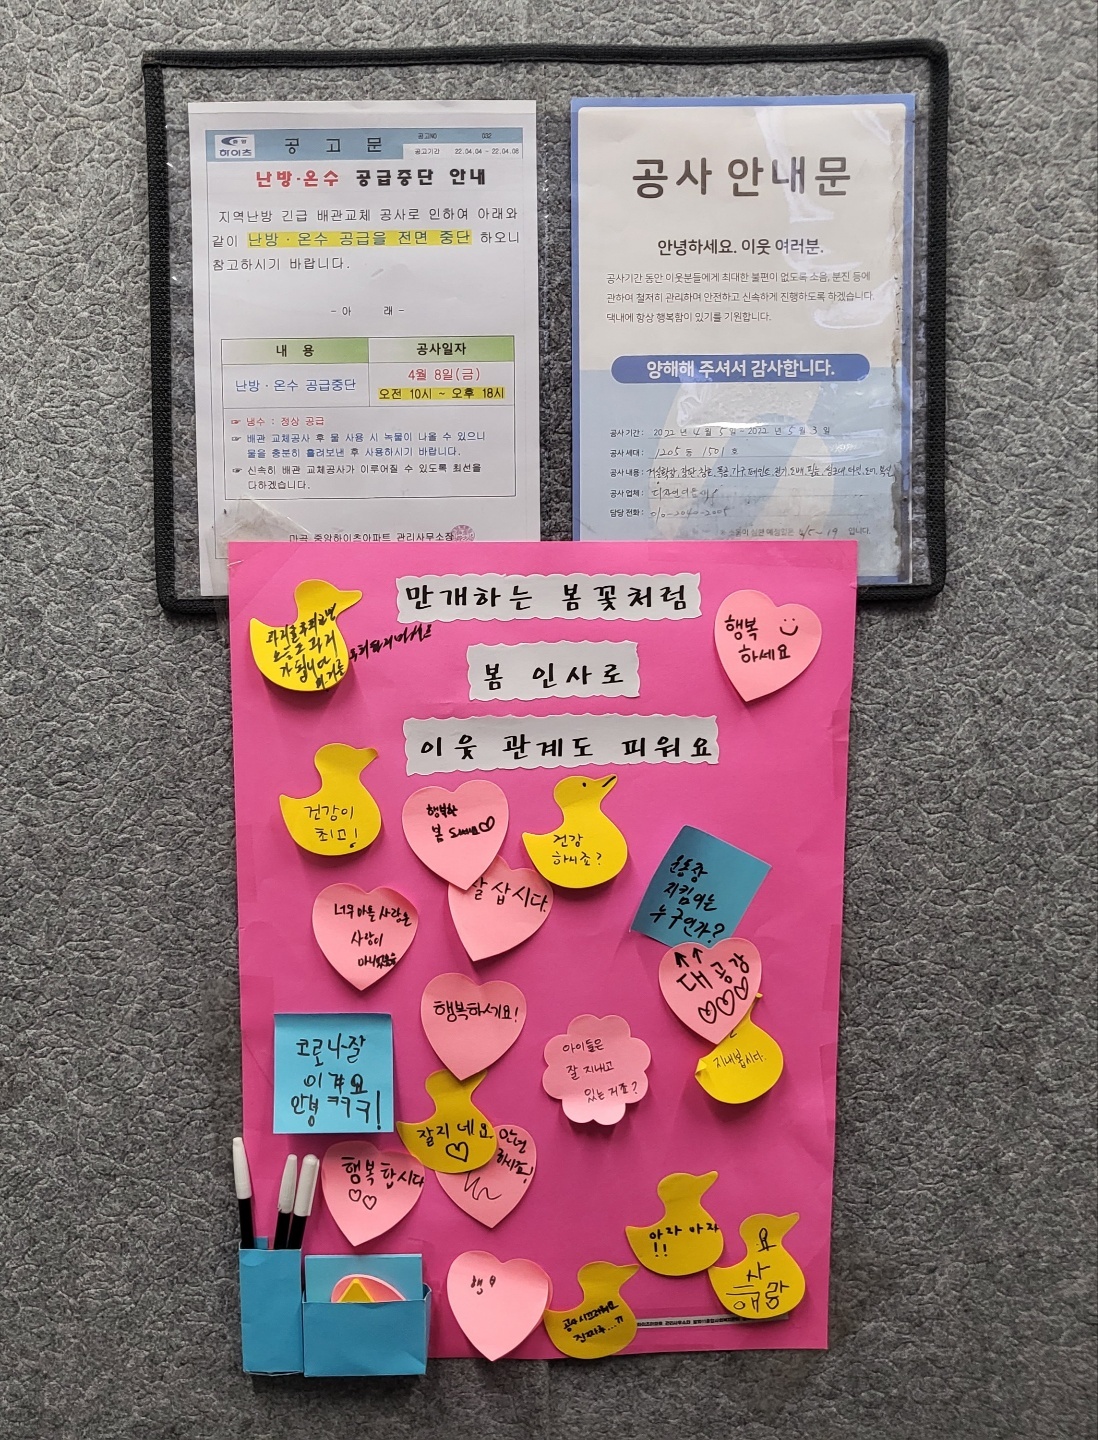 중앙
하이츠
공 고 문
공고NO 032
공고기간 22.04.04 - 22.04.08
난방·온수 공급중단 안내
지역난방 긴급 배관교체 공사로 인하여 아래와
같이 난방 · 온수 공급을 전면 중단 하오니
참고하시기 바랍니다.
- 아 래 -
내 용 공사일자
난방 · 온수 공급중단
4월 8일(금)
오전 10시 ~ 오후 18시
☞ 냉수 : 정상 공급
☞ 배관 교체공사 후 물 사용 시 녹물이 나올 수 있으니
물을 충분히 흘려보낸 후 사용하시기 바랍니다.
☞ 신속히 배관 교체공사가 이루어질 수 있도록 최선을
다하겠습니다.
마곡 중앙하이츠아파트 관리사무소장
공사 안내문
안녕하세요. 이웃 여러분.
공사기간 동안 이웃분들에게 최대한 불편이 없도록 소음, 분진 등에
관하여 철저히 관리하며 안전하고 신속하게 진행하도록 하겠습니다.
댁내에 항상 행복함이 있기를 기원합니다.
양해해 주셔서 감사합니다.
공사기간 : 2022 년 4 월 5 일 - 2022 년 5 월 3 일
공사세대 : 1205 동 1501 호
공사내용 :
공사업체 :
담당전화 : 010-2040-2005
4/5~19 입니다.
만개하는 봄꽃처럼
봄 인사로
이웃 관계도 피워요
행복
하세요
건강이
최고!
행복한
봄
건강
하시죠?
잘 삽시다.
운동장
지킴이는
누구인가?
사랑이
대공감
행복하세요!
아이들은
잘 지내고
있는거죠?
지내봅시다.
코로나 잘
이겨요
안녕 ㅋㅋㅋ!
잘지내요
안녕
하시죠!
행복합시다
아자 아자
!!
요
사
해맑
행복
공사 시끄러워요
진짜루...ㅠ